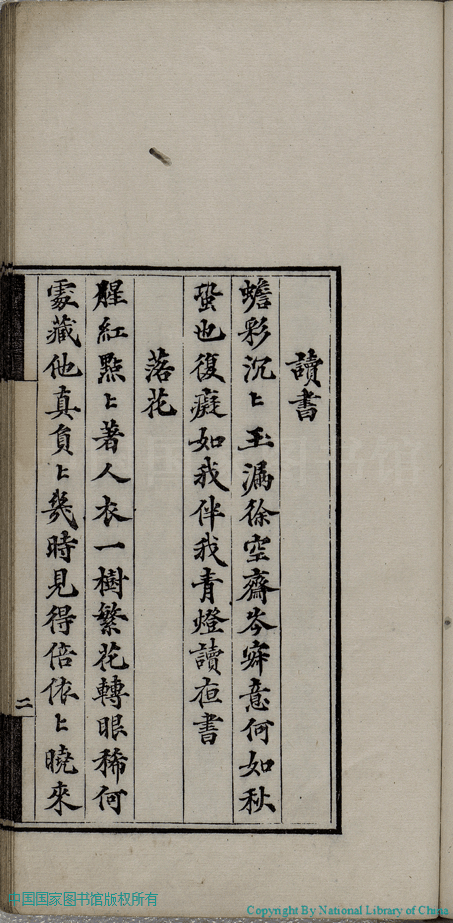 讀書
蟾彩沉〻玉漏徐空齋岑寂意何如秋
蛩也復癡如我伴我青燈讀夜書
落花
腥紅點〻著人衣一樹繁花轉眼稀何
處藏他真負〻幾時見得倍依〻曉來
二
中国国家图书馆版权所有
Copyright By National Library of China